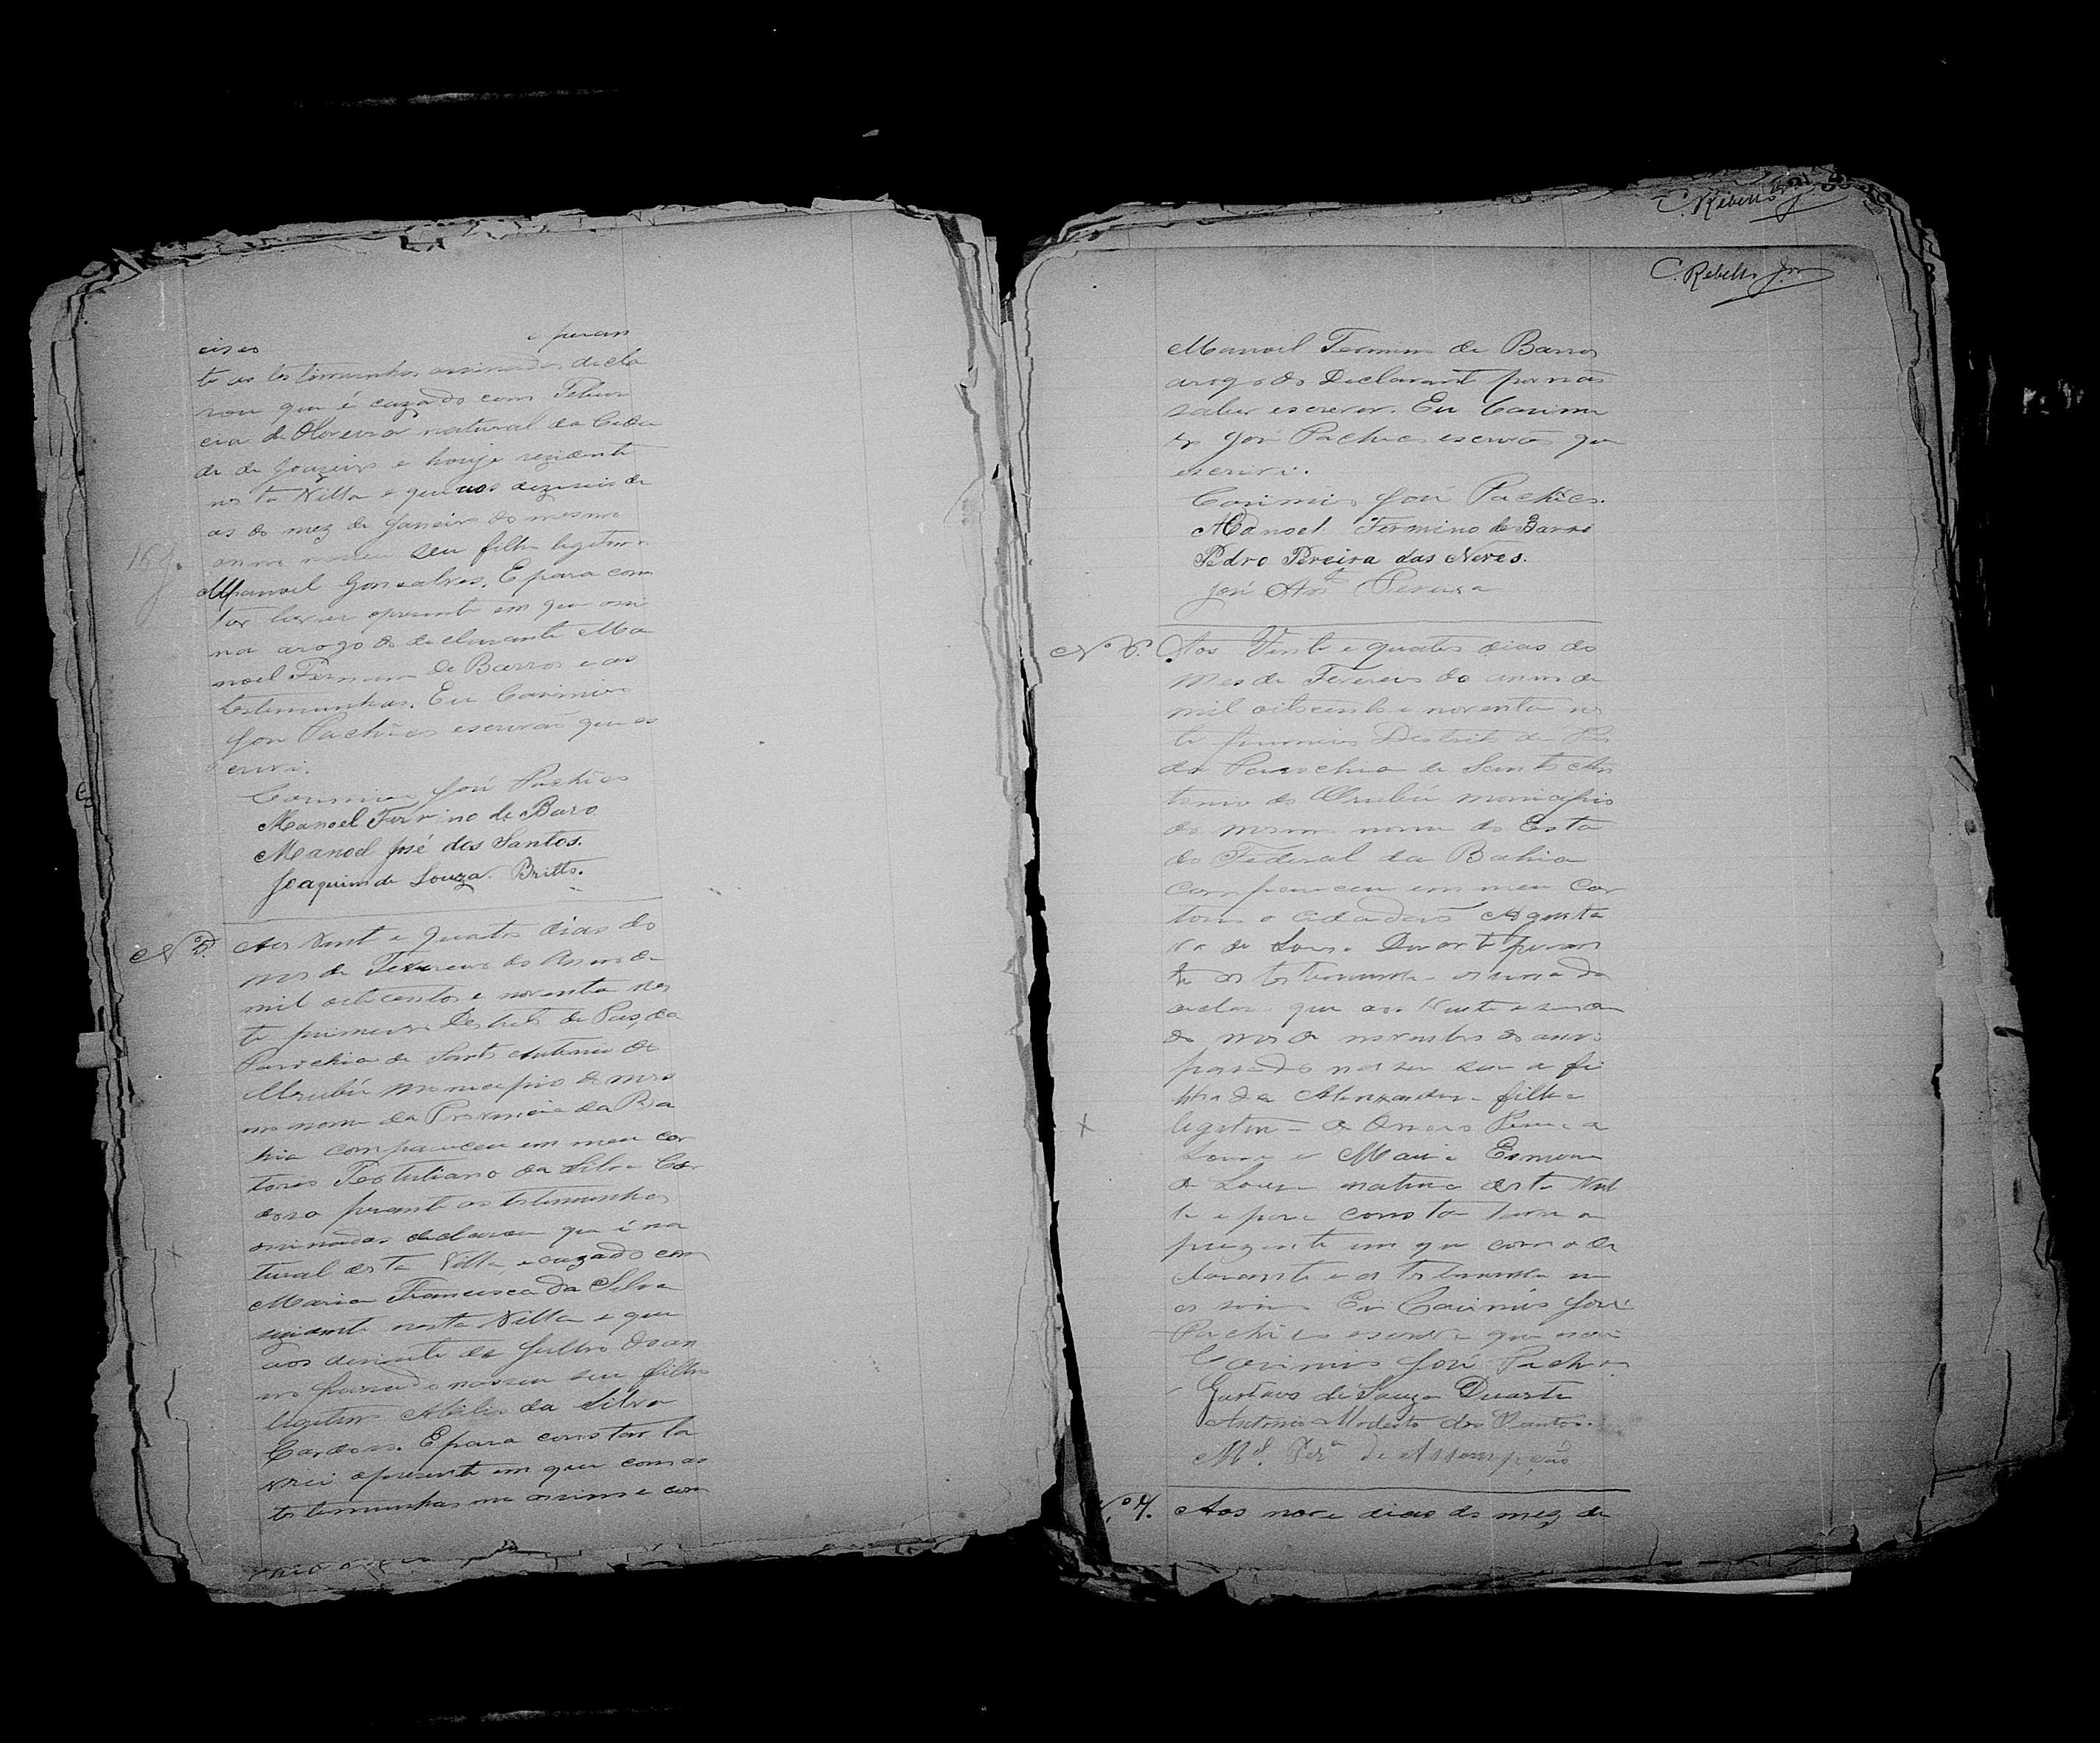 e peran
te as testimunhas assinadas decla
rou que é cazado com Tibur
cia de Oliveira natural da Cida
de de Joazeiro e hoije rezidente
nesta Villa e que aos dezeseis di
as do mez de Janeiro do mesmo
anno nasceu seu filho legitimo
Manoel Gonsalves. E para cons
tar lavrei opresente em que assi
na arogo do declarante Ma
noel Fermino de Barros e as
testemunhas. Eu Casimiro
José Pachêco escrivão que es
crivi.
Casimiro José Pachêco
Manoel Fermino de Baro
Manoel José dos Santos.
Joaquim de Souza Britto.
Nº 5. Aos Vinte e quatro dias do
mes de Fevereiro do Anno de
mil oitocentos e noventa nes
te primeiro Destrito de Pas, da
Parochia de Santo Antonio do
Urubú municipio do mes
mo nome da Provincia da Ba
hia compareceu em meu car
torio Tertuliano da Silva Car
dozo perante as testemunhas
assinadas declarou que é na
tural desta Villa, e cazado com
Maria Francisca da Silva
rezidente nesta Villa e que
aos desenite de Julho do an
no passado nasceu seu filho
legitimo da Silva
Cardozo. E para constar la
vrei opresente em que com as
testemunhas me assino e com
C. Rebello Jor
C. Rebello Jor
Manoel Fermino de Barros
arogo do Declarante por não
saber escrever. Eu Casimi
ro José Pacheco escrivão que
escrivi.
Casimiro José Pachêco.
Manoel Fermino de Barro
Pedro Pereira das Neves.
José Anto Pereira
Nº 6. Aos Vinte e quatro dias do
Mes de Fevereiro do anno de
mil oitocento e noventa nes
te primeiro Destrito de Pas
da Parochia de Santo An
tonio do Urubú municipio
do mesmo nome do Esta
do Federal da Bahia
compareceu em meu Car
torio o cidadão
de Souza Duarte peran
te as testemunha assinada
declarou que aos Vinte e
do mes de novembro do anno
passado nasceu sua a fi
lhada filha
legitima de Pereira
Souza e Maria
de Souza natural desta Vil
la e para constar lavrei o
prezente em que com o de
clarante e as testemunha me
assino Eu Casimiro José
Pachêco escrivão que escrivi
Casimiro José Pachêco
Gustavo de Souza Duarte
Antonio Modesto dos Santos.
Mel. Pera de Assumpção
Nº 7. Aos nove dias do mez de